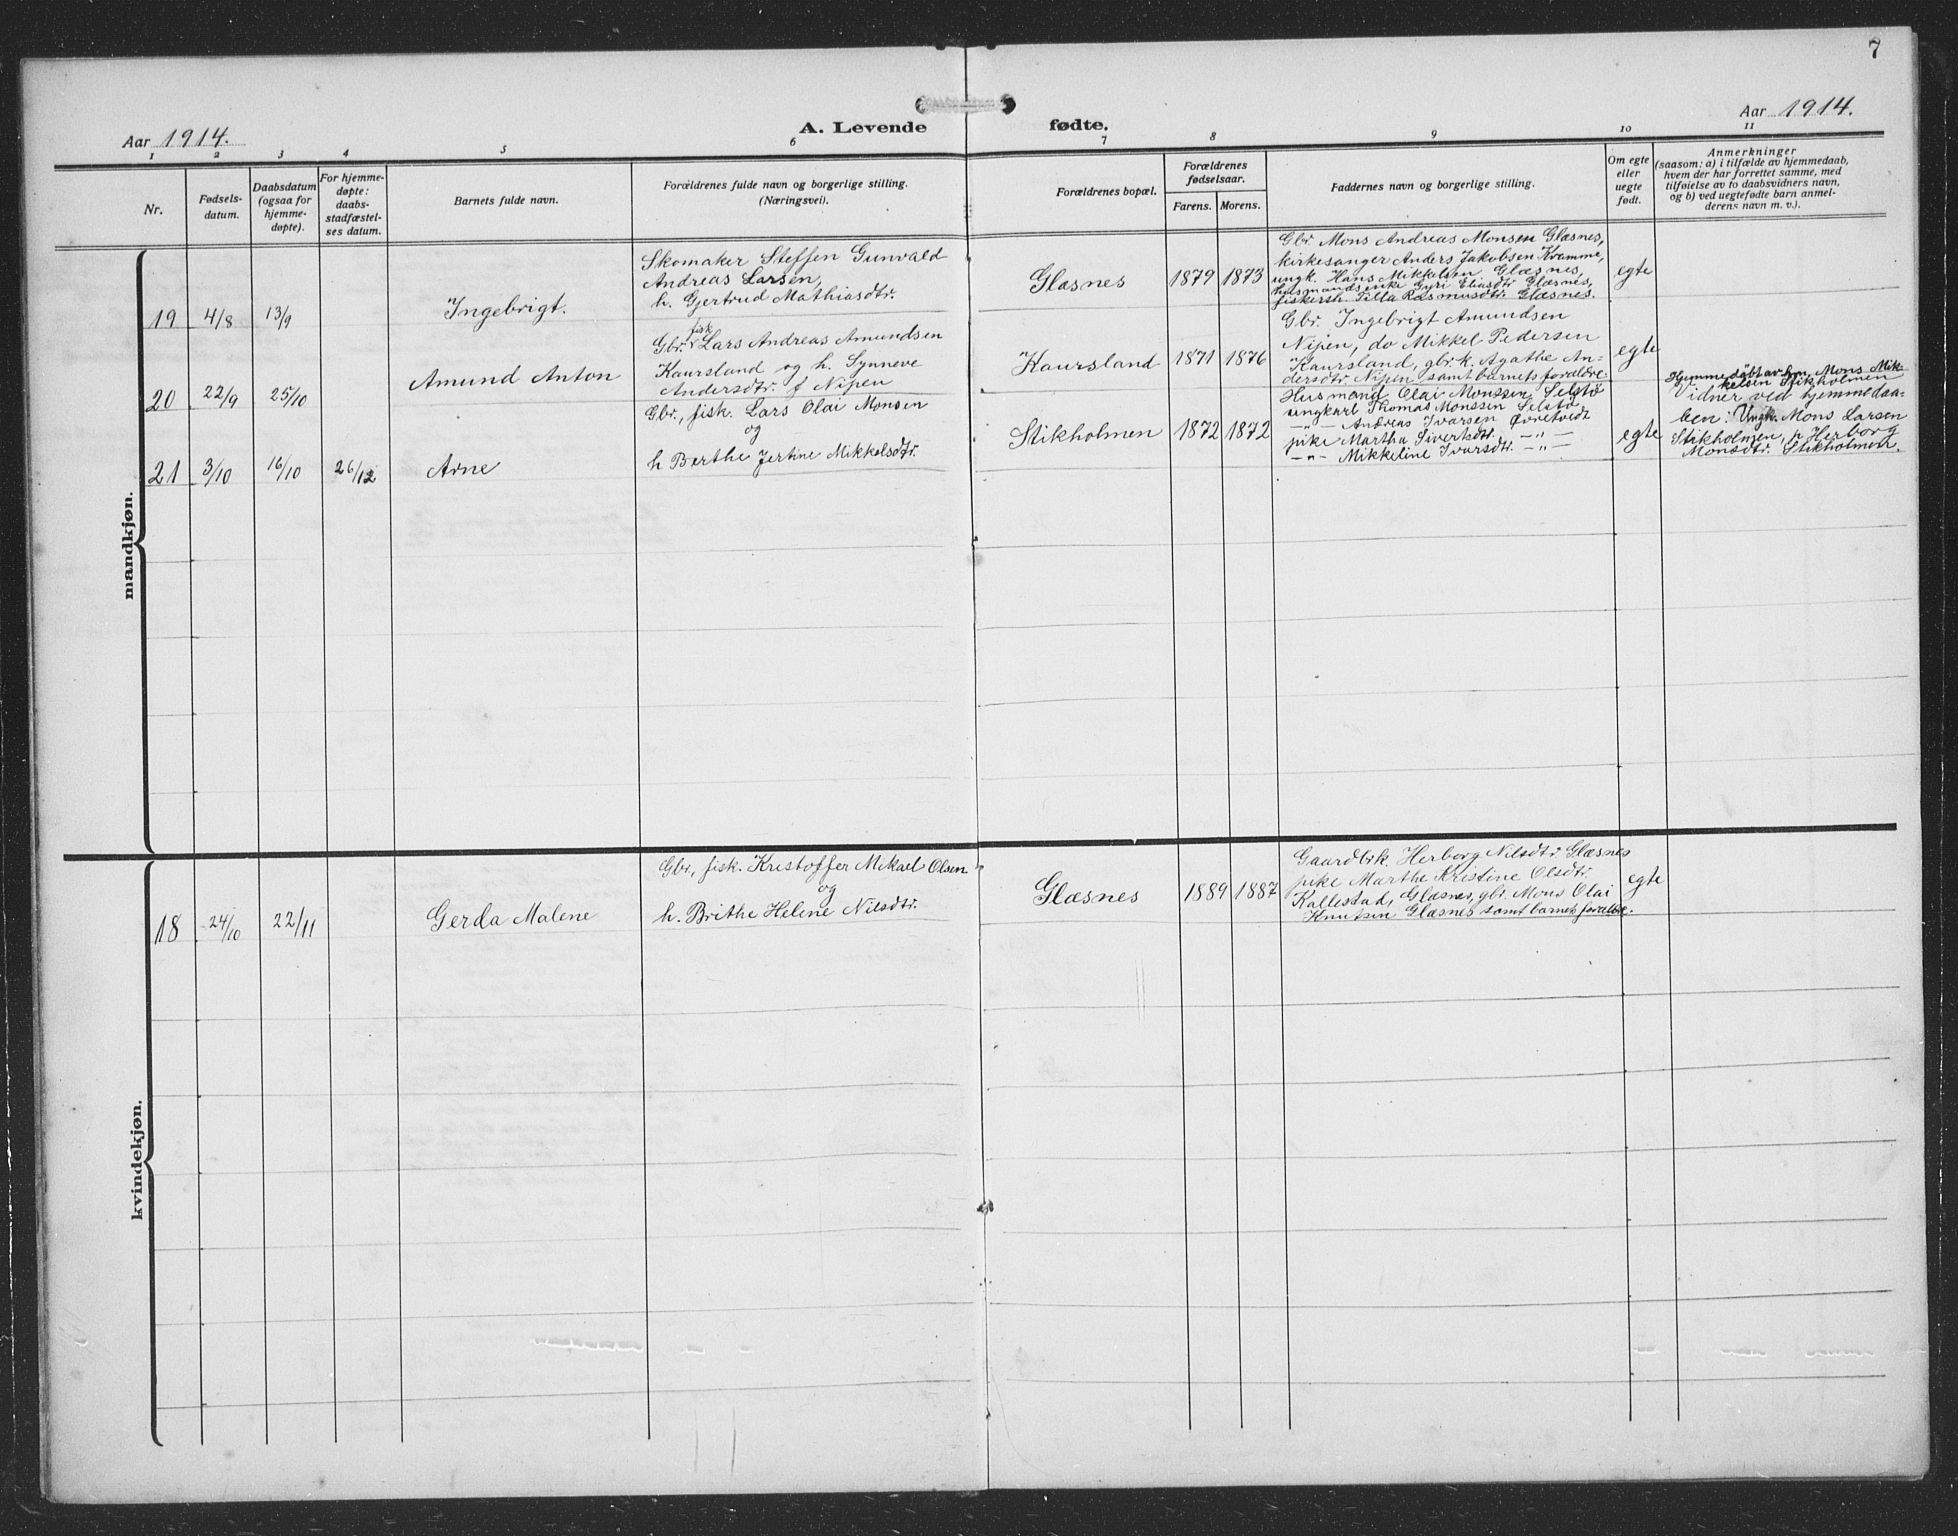 7
Aar 1914.
A. Levende fødte.
Aar 1914.
1 2 3 4 5 6 7 8 9 10 11
Nr.
Fødsels-
datum.
Daabsdatum
(ogsaa for
hjemme-
døpte).
For hjemme-
døpte:
daabs-
stadfæstel-
ses datum.
Barnets fulde navn.
Forældrenes fulde navn og borgerlige stilling.
(Næringsvei).
Forældrenes bopæl.
Forældrenes
fødselsaar.
Farens. Morens.
Faddernes navn og borgerlige stilling.
Om egte
eller
uegte
født.
Anmerkninger
(saasom: a) i tilfælde av hjemmedaab,
hvem der har forrettet samme, med
tilføielse av to daabsvidners navn,
og b) ved uegtefødte barn anmel-
derens navn m. v.).
mandkjøn.
19 4/8 13/9
Ingebrigt.
Skomaker Steffen Gunvald
Andreas Larsen,
h. Gjertrud Mathiasdtr.
Glæsnes
1879 1873
Gbr. Mons Andreas Monsen Glæsnes,
kirkesanger Anders Jakobsen Kramme,
ungk. Hans Mikkelsen Glæsnes,
husmandsenke Gyri Eliasdtr Glæsnes,
fiskersh. Tilla Rasmusdtr. Glæsnes.
egte
20 22/9 25/10
Amund Anton
fisk
Gbr. Lars Andreas Amundsen
Kaursland og h. Synneve
Andersdtr. f Nipen
Kaursland
1871 1876
Gbr. Ingebrigt Amundsen
Nipen, do Mikkel Pedersen
Kaursland, gbr.k. Agathe An-
dersdtr Nipen samt barnets forældre.
egte
21 3/10 16/10 26/12
Arne
Gbr., fisk. Lars Olai Monsen
og
h Berthe Jertine Mikkelsdtr.
Stikholmen
1872 1872
Husmand Olai Monssen Selstø
ungkarl Thomas Monssen Selstø
-„- Andreas Ivarsen Øvretvedt
pike Martha Sivertsdtr. -„-
-„- Mikkeline Ivarsdtr. -„-
egte
Hjemmedøbt av Mons Mik-
kelsen Stikholmen
idner ved hjemmedaa-
ben: Ungk. Mons Larsen
Stikholmen, Herborg
Monsdtr. Stikholmen.
kvindekjøn.
18 24/10 22/11
Gerda Malene
Gbr, fisk. Kristoffer Mikael Olsen
og
h. Brithe Helene Nilsdtr.
Glæsnes
1889 1887
Gaardbrk. Herborg Nilsdtr. Glæsnes
pike Marthe Kristine Olsdtr.
Kallestad, Glæsnes, gbr. Mons Olai
Knutsen Glæsnes samt barnets forældre.
egte